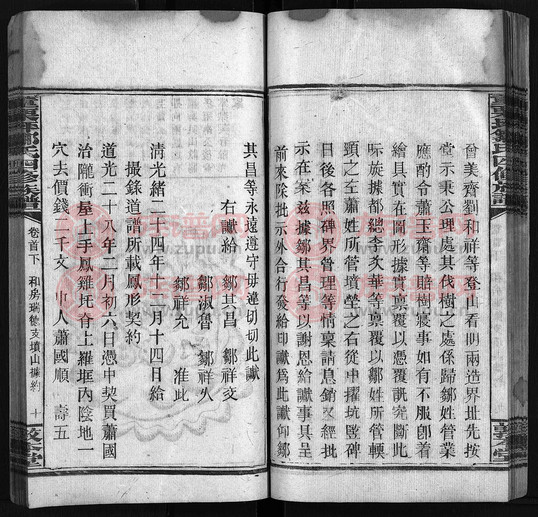 曾美齊劉和祥等登山看明兩造界址先按
堂示秉公理處其伐樹之處係歸鄒姓管業
應酌令蕭玉齋等賠樹寢事如有不服卽着
繪具實在圖形據實稟覆以憑覆訊完斷此
際旋據都總李次華等稟覆以鄒姓所管
頸之至蕭姓所管墳塋之右從中擢坑竪碑
日後各照碑界管理等情稟請息銷又經批
示在案茲據鄒其昌等以謝恩給讞事具呈
前來除批示外合行發給印讞爲此讞仰鄒
其昌等永遠遵守毋違切切此讞
右讞給 鄒其昌 鄒祥交
鄒淑魯 鄒祥人
鄒祥允 准此
清光緒二十四年十二月十四日給
撮錄道譜所載鳳形契約
道光二十八年二月初六日憑中契買蕭國
治隴衝屋上手鳳雞圫脊上羅框內陰地一
穴去價錢二千文 中人蕭國順 壽五
鄒氏四修族譜
卷首下 和房瑞德支墳山據約 十
敦本堂